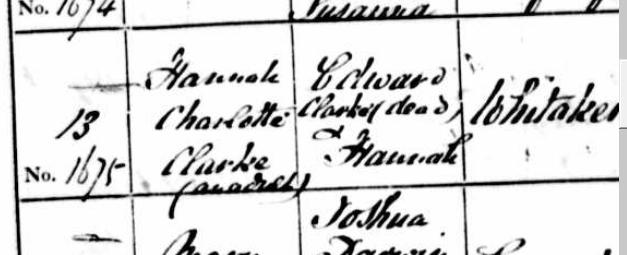 No. 1674
Susanna
Hannah Edward
Charlotte Clarke (dead) Whitaker
13
Clarke & Hannah
No. 1675
(an adult)
Joshua